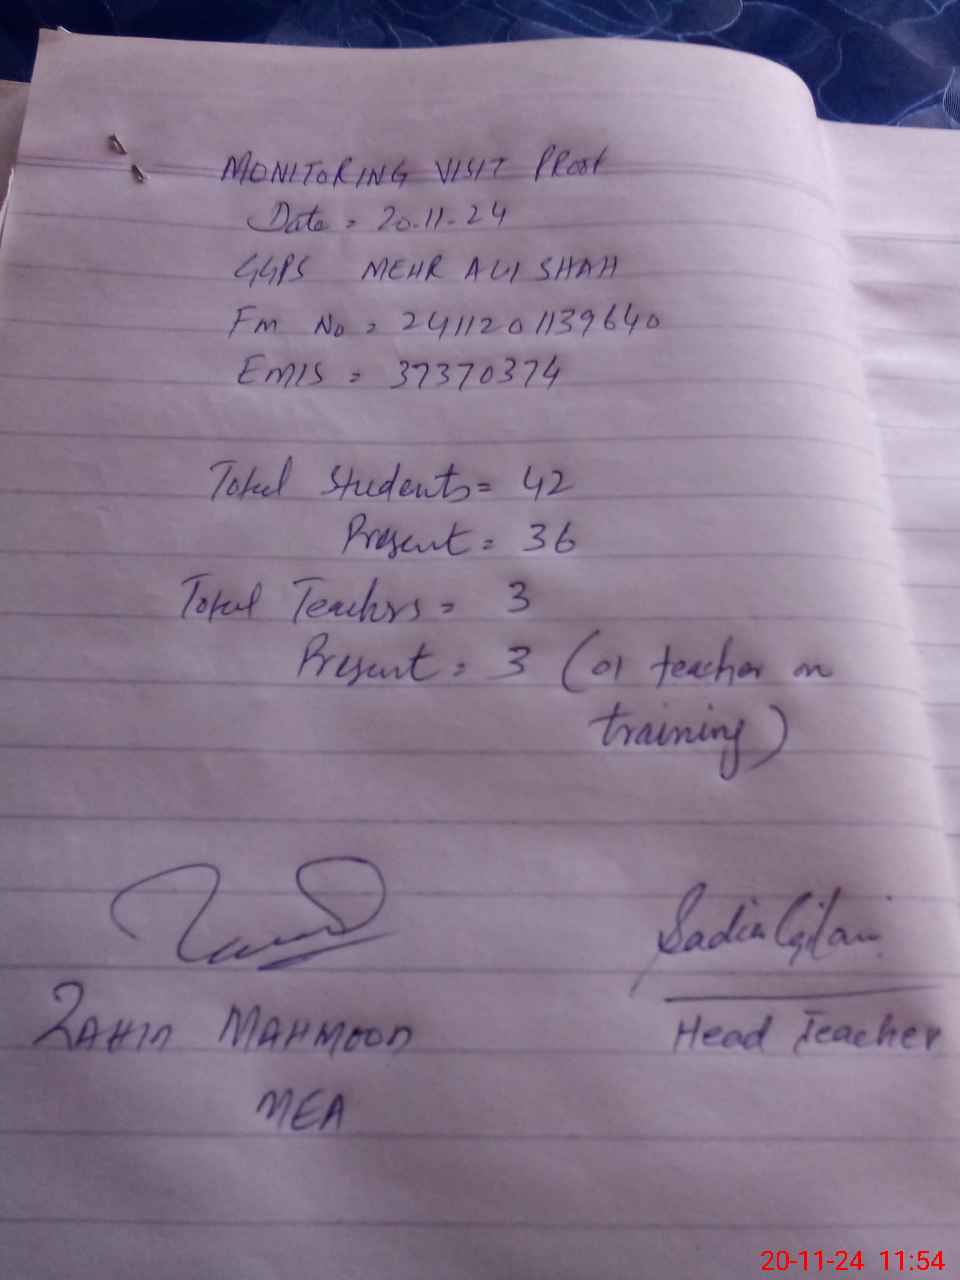 MONITORING VISIT PROOF
Date = 20.11.24
GGPS MEHR ALI SHAH
Fm No = 2411201139640
EMIS = 37370374
Total Students = 42
Present = 36
Total Teachers = 3
Present = 3 (01 teacher on
training)
Sadia Gilani
ZAHID MAHMOOD
Head Teacher
MEA
20-11-24 11:54